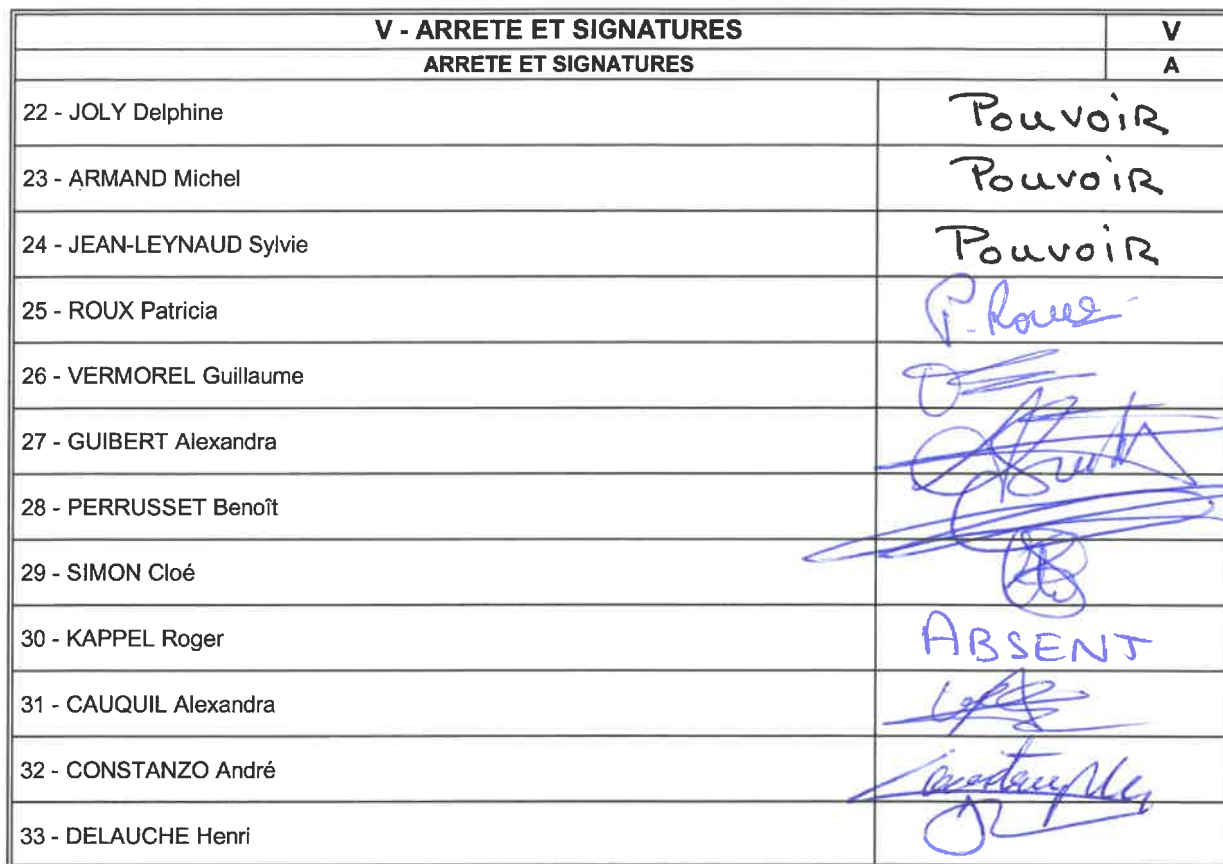 V - ARRETE ET SIGNATURES V
ARRETE ET SIGNATURES A
22 - JOLY Delphine PouvoiR
23 - ARMAND Michel PouvoiR
24 - JEAN-LEYNAUD Sylvie PouvoiR
25 - ROUX Patricia P. Roux
26 - VERMOREL Guillaume
27 - GUIBERT Alexandra
28 - PERRUSSET Benoît
29 - SIMON Cloé
30 - KAPPEL Roger ABSENT
31 - CAUQUIL Alexandra
32 - CONSTANZO André
33 - DELAUCHE Henri